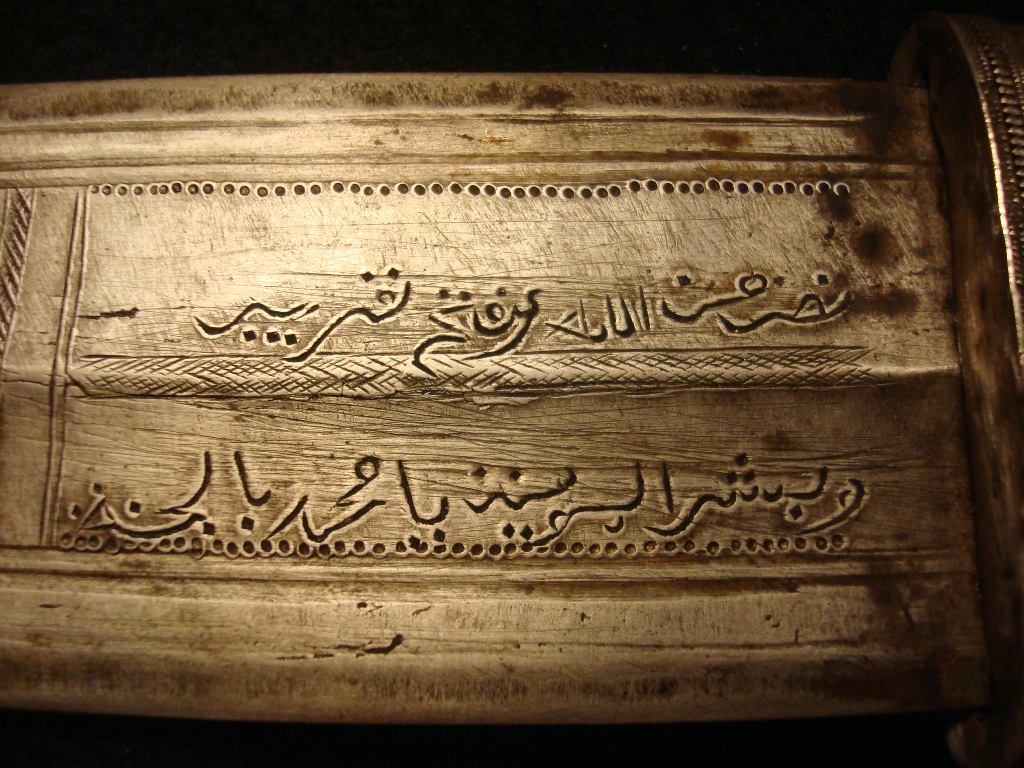 نصر من الله وفتح قريب
وبشر المومنين يا محمد بالجنة